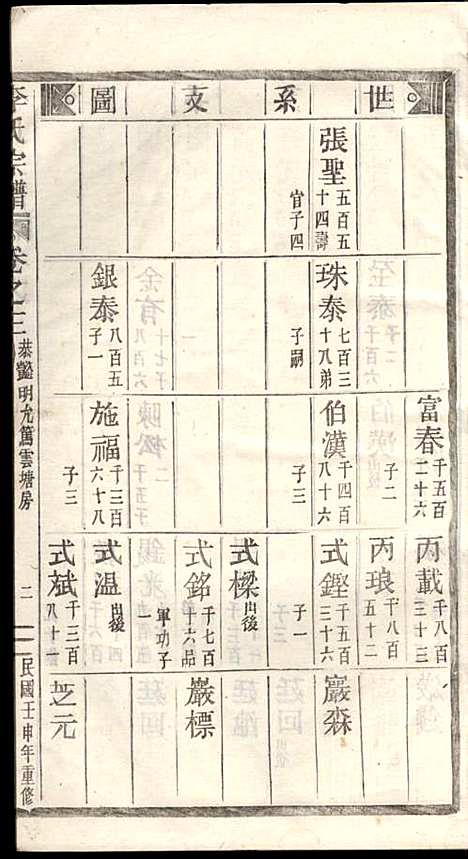 世系支圖
張聖 五百五十四壽官子四
珠泰 七百三十八弟子嗣
銀泰 八百五 子一
富春 千五百二十六 子二
伯漢 千四百八十六 子三
施福 千三百六十八 子三
丙載 千八百三十三
丙琅 千八百五十二
式鏗 千五百三十六 子一
式樑 出後
式銘 千七百十六 品軍功子一
式溫 出後
式斌 千三百八十二
巖森
巖標
芝元
李氏宗譜
卷之三
明九萬雲塘房
二
民國壬申年重修